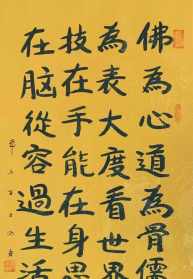 佛為心道為骨儒
為表大度看世界
技在手能在身思
在脑從容過生活